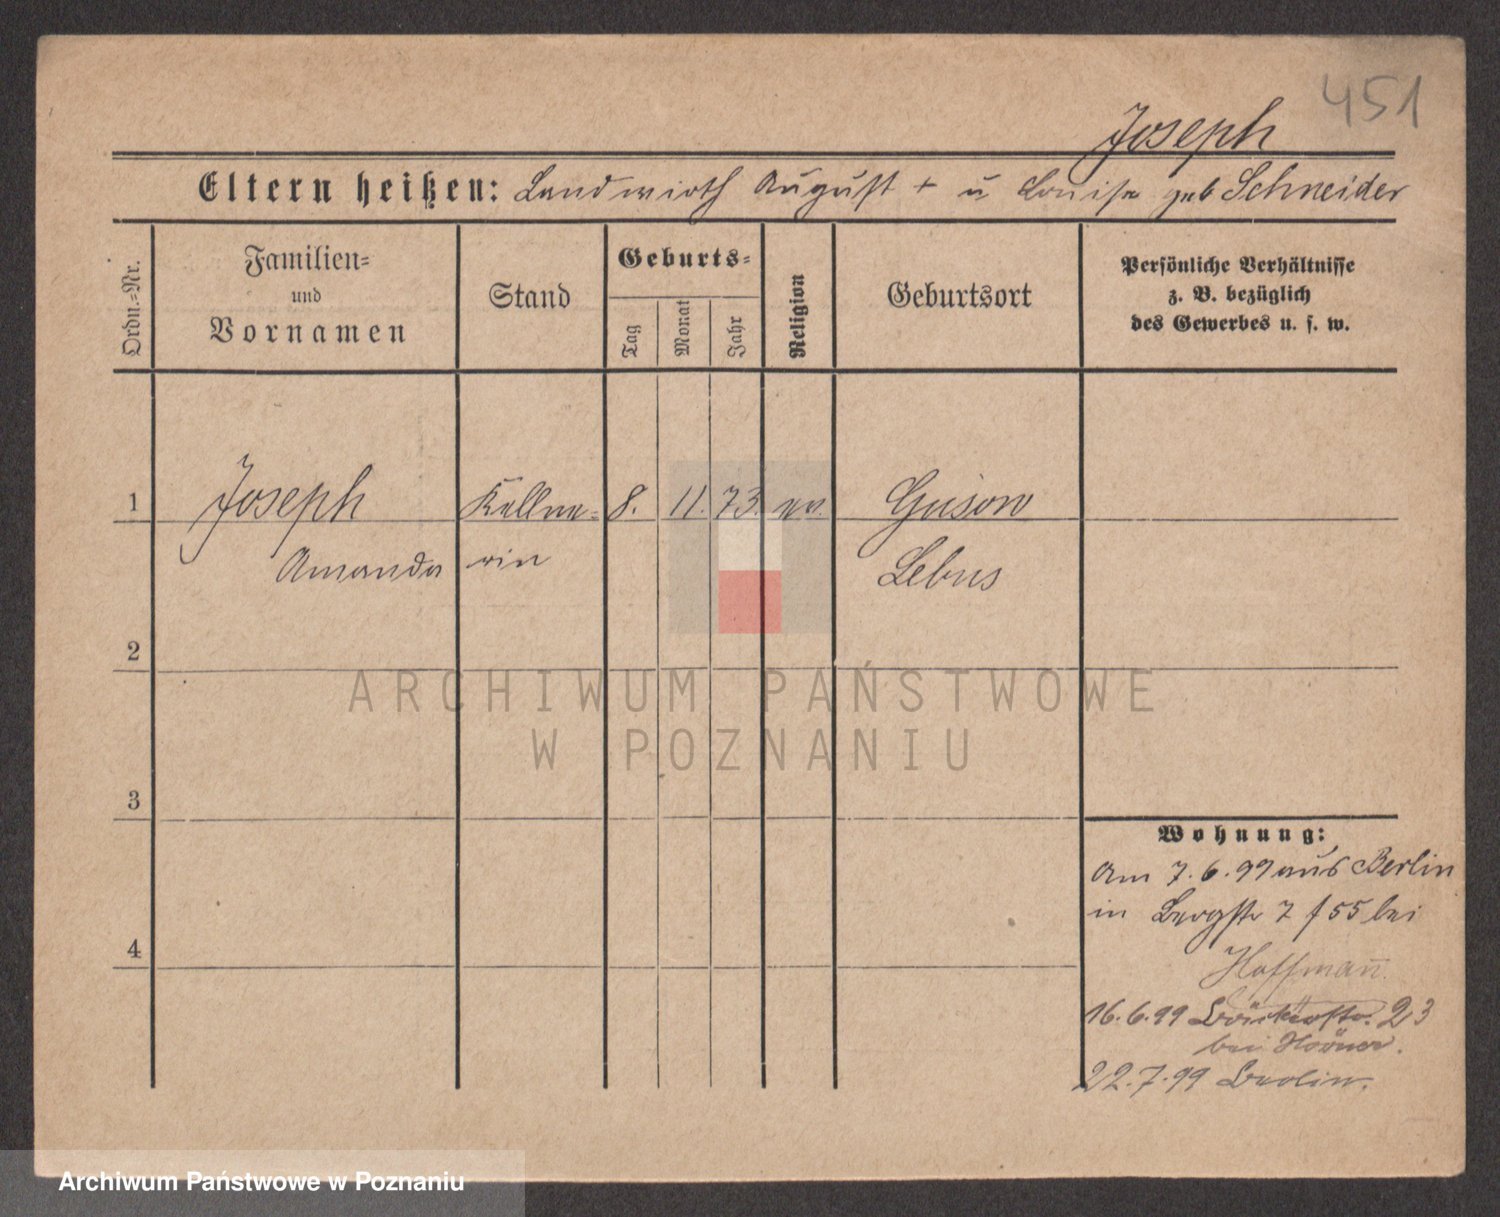 451
Joseph
Eltern heißen: Landwirth August + u Louise geb Schneider
Ordn.-Nr.
Familien-
und
Vornamen
Stand
Geburts-
Tag
Monat
Jahr
Religion
Geburtsort
Persönliche Verhältnisse
z. B. bezüglich
des Gewerbes u. s. w.
1 Joseph Kellne- 8. 11. 73. ev. Gusow
Amanda rin Lebus
2
ARCHIWUM PAŃSTWOWE
W POZNANIU
3
Wohnung:
Am 7.6.99 aus Berlin
in Bergstr 7 f 55 bei
Hoffmann
4
16.6.99 23
bei
22.7.99 Berlin.
Archiwum Państwowe w Poznaniu